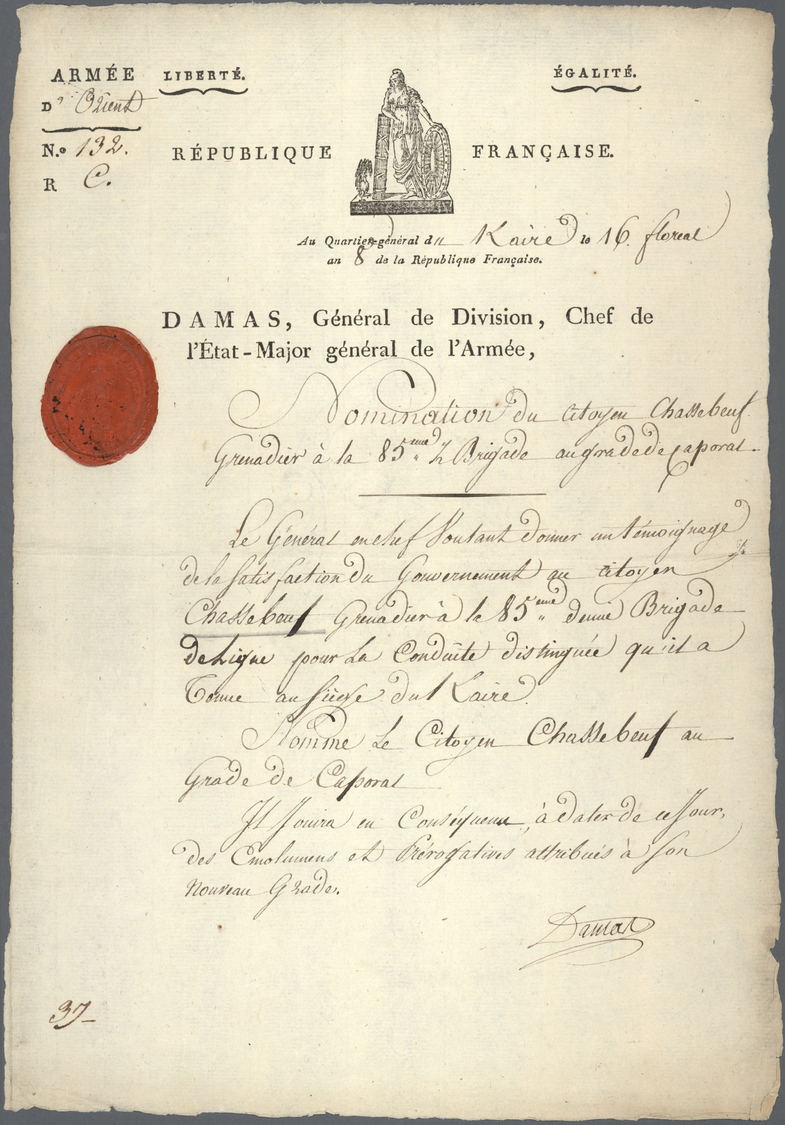 ARMÉE
D' Orient
N.o 132.
R C.
LIBERTÉ.
ÉGALITÉ.
RÉPUBLIQUE FRANÇAISE.
Au Quartier-général du Kaire le 16 floreal
an 8 de la République Française.
DAMAS, Général de Division, Chef de
l'État-Major général de l'Armée,
Nomination du Citoyen Chassebeuf
Grenadier à la 85eme ½ Brigade au grade de Caporal.
Le Général en chef Voulant donner un témoignage
de la Satisfaction du Gouvernement au Citoyen
Chassebeuf Grenadier à la 85eme demie Brigade
de Ligne pour La Conduite distinguée qu'il a
Tenue au Siége du Kaire.
Nomme Le Citoyen Chassebeuf au
Grade de Caporal
Il Jouira en Conséquence, à dater de ce Jour,
des Emolumens et Prérogatives attribués à Son
Nouveau Grade.
Damas
37